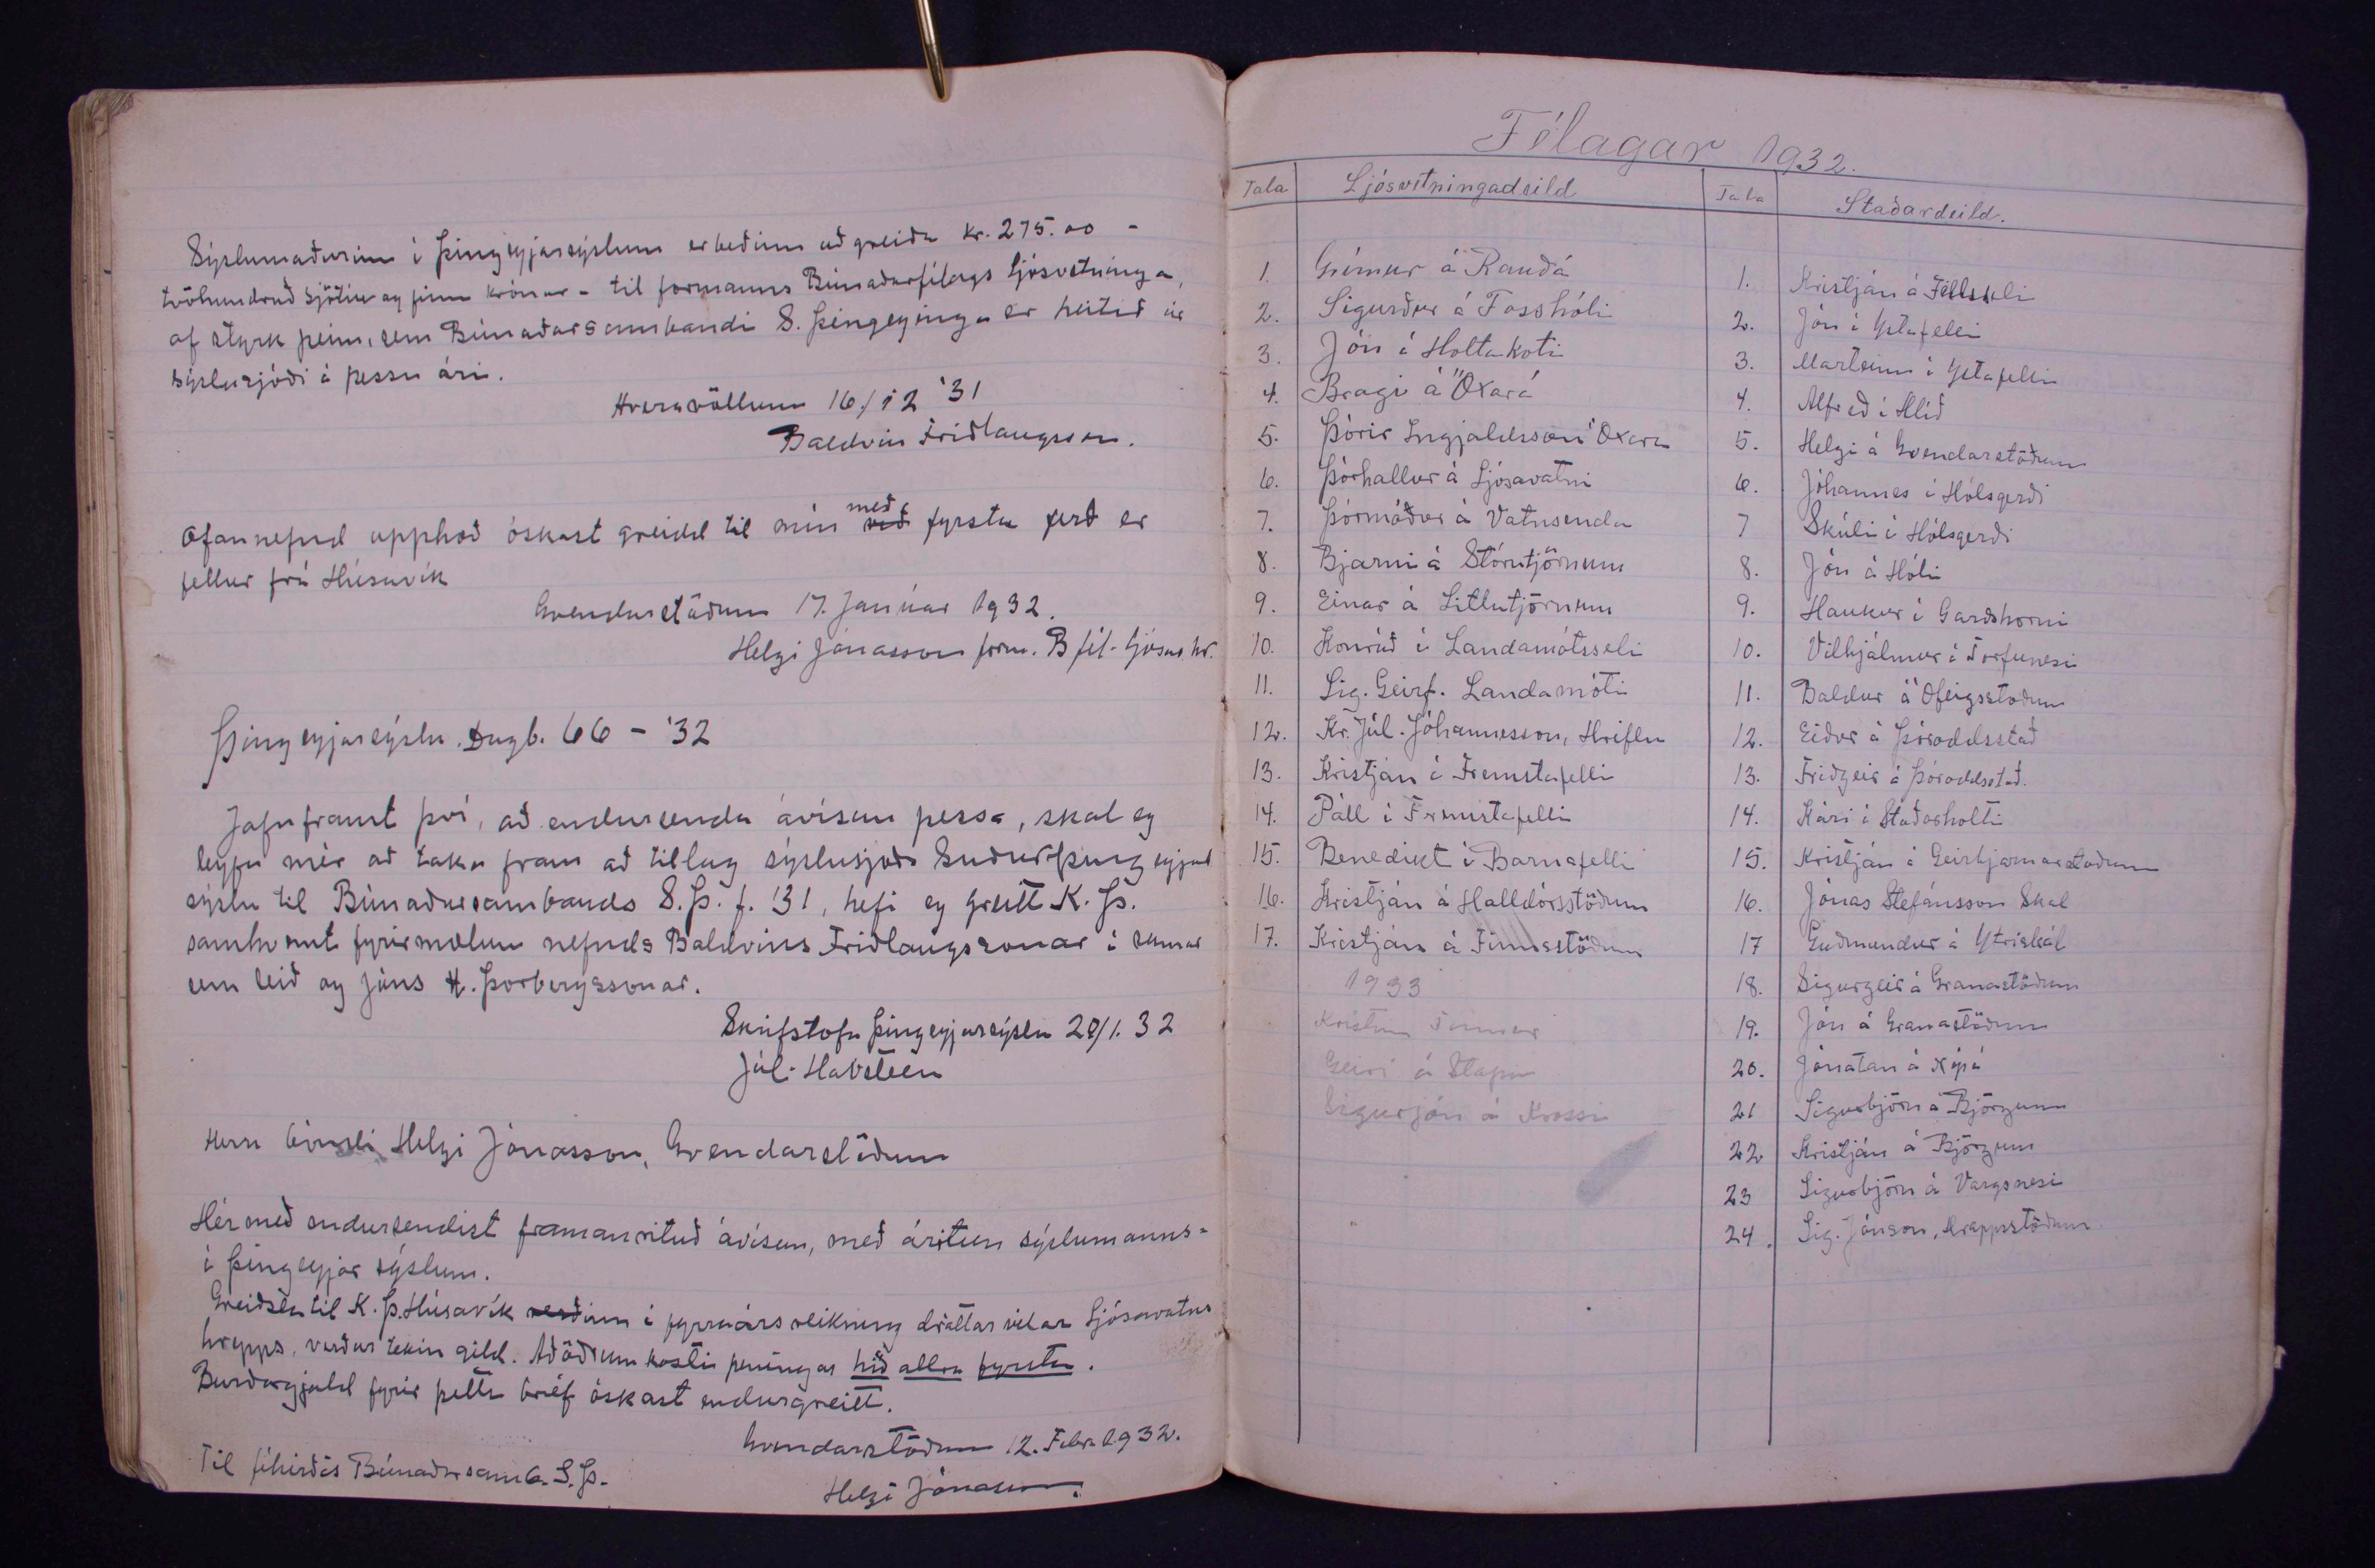 Sýslumaðurinn í Þingeyjarsýslum er beðinn að greiða kr. 275.00 -
tvöhundruð sjötíu og fimm krónur - til formanns Búnaðarfélags Ljósvetninga,
af styrk þeim, sem Búnaðarsambandi S. Þingeyinga er heitið úr
sýslusjóði á þessu ári.
Hveravöllum 16/12 '31
Baldvin Friðlaugsson.
Ofannefnd upphæð óskast greidd til mín með fyrstu ferð er
fellur frá Húsavík
Gvendarstöðum 17. Janúar 1932.
Helgi Jónasson form. B.fél. Ljósav.hr.
Þingeyjarsýslu. Dagb. 66 - '32
Jafnframt því, að endursenda ávísun þessa, skal eg
leyfa mér að taka fram að tillag sýslusjóðs Suðurþingeyjar
sýslu til Búnaðarsambands S.Þ. f. '31, hefi eg greitt K.Þ.
samkvæmt fyrirmælum nefnds Baldvins Friðlaugssonar í sumar
sem leið og Jóns H. Þorbergssonar.
Skrifstofu Þingeyjarsýslu 28/1. 32
Júl. Havsteen
Herra Helgi Jónasson, Gvendarstöðum
Hér með endursendist framanrituð ávísun, með áritun sýslumanns-
í Þingeyjar sýslum.
Greiðsla til K.Þ. Húsavík í fyrraárs reikning dráttarvélar Ljósavatns
hrepps, verður tekin gild. Að öðrum kosti peningar hið allra fyrsta.
Burðargjald fyrir þetta bréf óskast endurgreitt.
Gvendarstöðum 12. Febr. 1932.
Til féhirðis Búnaðarsamb. S.Þ.
Helgi Jónasson.
Félagar 1932.
Tala Ljósvetningadeild Tala Staðardeild.
1. Grímur á Rauðá
2. Sigurður á Fosshóli
3. Jón í Holtakoti
4. Bragi á Öxará
5. Þórir Ingjaldsson Öxará
6. Þórhallur á Ljósavatni
7. Þórmóður á Vatnsenda
8. Bjarni á Stórutjörnum
9. Einar á Litlutjörnum
10. Konráð í Landamótsseli
11. Sig. Geirf. Landamóti
12. Kr. Júl. Jóhannesson, Hriflu
13. Kristján í Fremstafelli
14. Páll í Fremstafelli
15. Benedikt í Barnafelli
16. Kristján á Halldórsstöðum
17. Kristján á Finnsstöðum
1933
Kristinn
Geiri á Stapa
Sigurjón á Krossi
1. Kristján á Fellsseli
2. Jón í Ystafelli
3. Marteinn í Ystafelli
4. Alfreð í Hlíð
5. Helgi á Gvendarstöðum
6. Jóhannes í Hólsgerði
7 Skúli í Hólsgerði
8. Jón á Hóli
9. Haukur í Garðshorni
10. Vilhjálmur í Torfunesi
11. Baldur á Ófeigsstöðum
12. Eiður á Þóroddsstað
13. Friðgeir á Þóroddsstað.
14. Kári í Staðarholti
15. Kristján á Geirbjarnarstöðum
16. Jónas Stefánsson Skál
17 Guðmundur á Ytriskál
18. Sigurgeir á Granastöðum
19. Jón á Granastöðum
20. Jónatan á Nýpá
21 Sigurbjörn á Björgum
22 Kristján á Björgum
23 Sigurbjörn á Vargsnesi
24. Sig. Jónson, Krappsstöðum